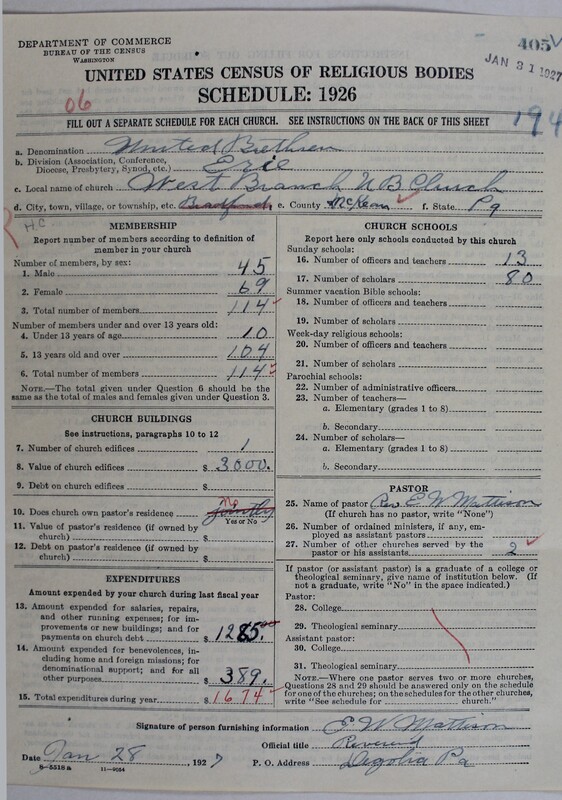 DEPARTMENT OF COMMERCE
BUREAU OF THE CENSUS
WASHINGTON
405
JAN 31 1927
UNITED STATES CENSUS OF RELIGIOUS BODIES
SCHEDULE: 1926
06
FILL OUT A SEPARATE SCHEDULE FOR EACH CHURCH. SEE INSTRUCTIONS ON THE BACK OF THIS SHEET
194
a. Denomination United Brethren
b. Division (Association, Conference, Diocese, Presbytery, Synod, etc.) Erie
c. Local name of church West Branch U B Church
d. City, town, village, or township, etc. Bradford e. County McKean f. State Pa
H.C.
MEMBERSHIP
Report number of members according to definition of
member in your church
Number of members, by sex:
1. Male 45
2. Female 69
3. Total number of members 114
Number of members under and over 13 years old:
4. Under 13 years of age 10
5. 13 years old and over 104
6. Total number of members 114
NOTE.—The total given under Question 6 should be
same as the total of males and females given under Question 3.
CHURCH BUILDINGS
See instructions, paragraphs 10 to 12
7. Number of church edifices 1
8. Value of church edifices $ 3000.
9. Debt on church edifices $
10. Does church own pastor's residence No jointly
Yes or No
11. Value of pastor's residence (if owned by
church) $
12. Debt on pastor's residence (if owned by
church) $
EXPENDITURES
Amount expended by your church during last fiscal year
13. Amount expended for salaries, repairs,
and other running expenses; for im-
provements or new buildings; and for
payments on church debt $ 1285.
14. Amount expended for benevolences,
including home and foreign missions; for
denominational support; and for all
other purposes $ 389.
15. Total expenditures during year $ 1674
CHURCH SCHOOLS
Report here only schools conducted by this church
Sunday schools:
16. Number of officers and teachers 13
17. Number of scholars 80
Summer vacation Bible schools:
18. Number of officers and teachers
19. Number of scholars
Week-day religious schools:
20. Number of officers and teachers
21. Number of scholars
Parochial schools:
22. Number of administrative officers
23. Number of teachers—
a. Elementary (grades 1 to 8)
b. Secondary
24. Number of scholars—
a. Elementary (grades 1 to 8)
b. Secondary
PASTOR
25. Name of pastor Rev. E W Mattison
(If church has no pastor, write "None")
26. Number of ordained ministers, if any, em-
ployed as assistant pastors
27. Number of other churches served by the
pastor or his assistants 2
If pastor (or assistant pastor) is a graduate of a college or
theological seminary, give name of institution below. (If
not a graduate, write "No" in the space indicated.)
Pastor:
28. College
29. Theological seminary
Assistant pastor:
30. College
31. Theological seminary
NOTE.—Where one pastor serves two or more churches,
Questions 28 and 29 should be answered only on the schedule
for one of the churches; on the schedules for the other churches,
write "See schedule for church."
Signature of person furnishing information E W Mattison
Official title Reverend
Date Jan 28, 1927 P. O. Address Degolia Pa
8—5518a 11—9084